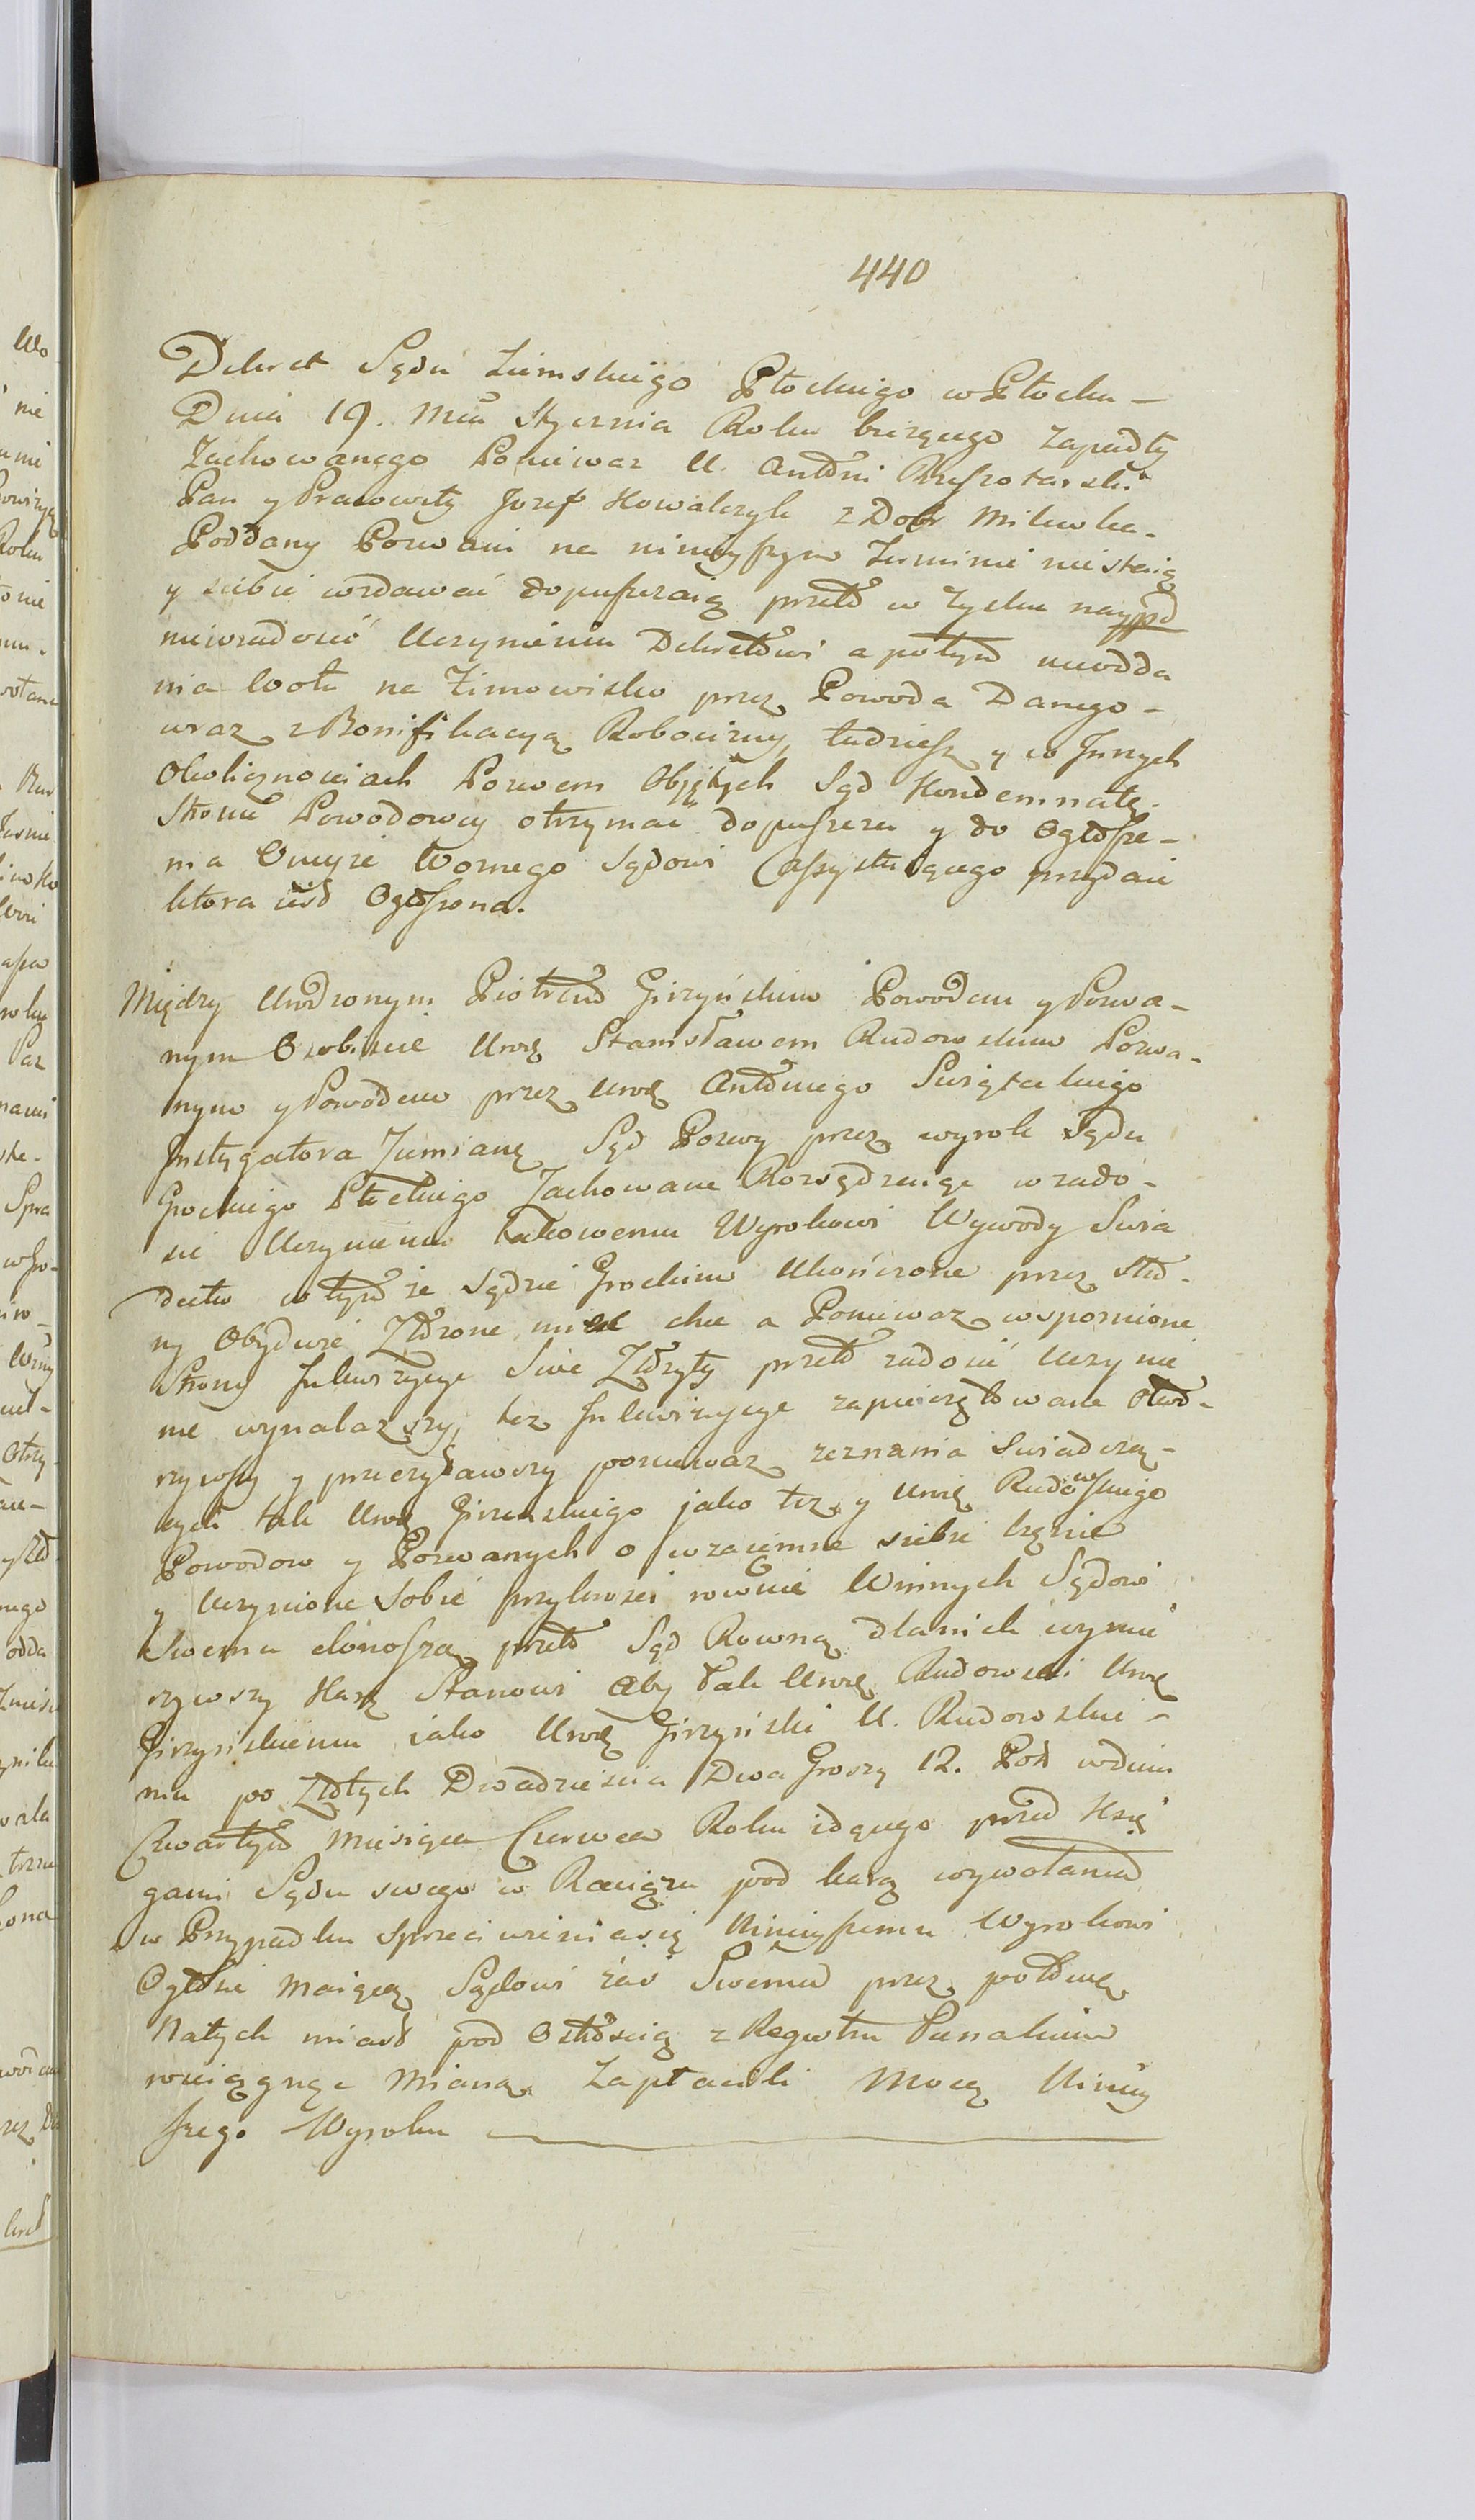 440
Dekret Sądu Ziemskiego Płockiego w Płocku –
Dnia 19. Mca Stycznia Roku bieżącego Zapadły
Zachowanego Ponieważ U. Antoni
Pan y Pracowity Jozef Kowalczyk z Dobr Milewka.
Poddany Pozwani na ninieyszym Terminie nie staią
y siebie wzdawać dopuszczaią przeto w Zysku naypd
niewzadosić Uczynieniu Dekretowi a potym nieodda
nia Wołu na Zimowisko przez Powoda Danego –
wraz z Bonifikacyą Robocizny, tudziesz y w Innych
Okolicznościach Pozwem Objętych Sąd Kondemnatę.
Stronie Powodowey otrzymać dopuszcza y do Ogłosze –
nia Oneyże Woźnego Sądowi Assystuiącego przydaie
ktora iest Ogłoszona.
Między Urodzonym Piotrem Girzyńskim Powodem y Pozwa –
nym Osobiście Urod Stanisławem Rudowskim Pozwa –
nym y Powodem przez Urod Antoniego Swiętalskiego
Instygatora Ziemianę Sąd Pozwy przez wyrok Sądu
Grockiego Płockiego Zachowane Rozsądzaiąc w zado –
sić Uczynieniu takowemu Wyrokowi Wywody Swia
dectw w tym że Sądzie Grockim Ukończone przez stro –
ny Obydwie Złożone mieć chce a Ponieważ wspomnione
Strony Inkwizycye Swe Złożyły przeto zadosić Uczynie
nie wynalazszy, tez Inkwizycye zapieczętowane otwo –
rzywszy y przeczytawszy ponieważ zeznania Swiadczą –
cych tak Urod Girzenskiego jako tez y Urod Rudowskiego
Powodow y Pozwanych o wzaiemne siebie lzenie
y Uczynione Sobie przykrosci rownie Winnych Sądowi
Swemu donoszą, przeto Sąd Rowną dla nich wymie
rzywszy Karę Stanowi Aby tak Urod Rudowski Urod
Girzyńskiemu iako Urod Girzyński U. Rudowskie –
mu po Złotych Dwadziescia Dwa Groszy 12. Pol w dniu
Czwartym Miesiąca Czerwca Roku idącego przed Xię
gami Sądu swego w Raciążu pod karą wywołania
w Przypadku sprzeciwienia się Ninieyszemu Wyrokowi
Ogłosic maiącą Sądowi zas Swemu przez połowę
Natych miast pod Ostroscią z Regestru Panalium
wciągnąc mianą Zapłacili Mocą Niniey
szego Wyroku